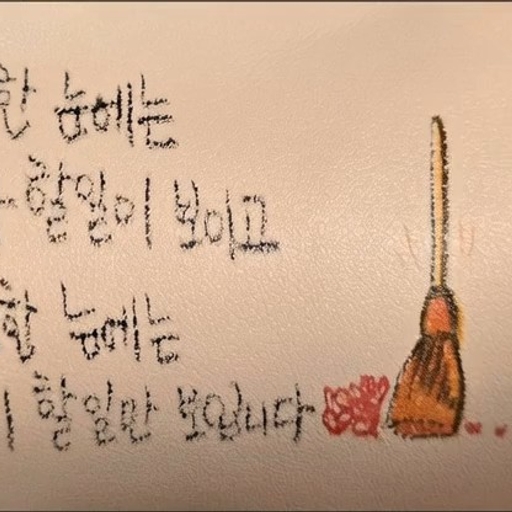 눈에는
할일이 보이고
눈에는
할일만 보입니다